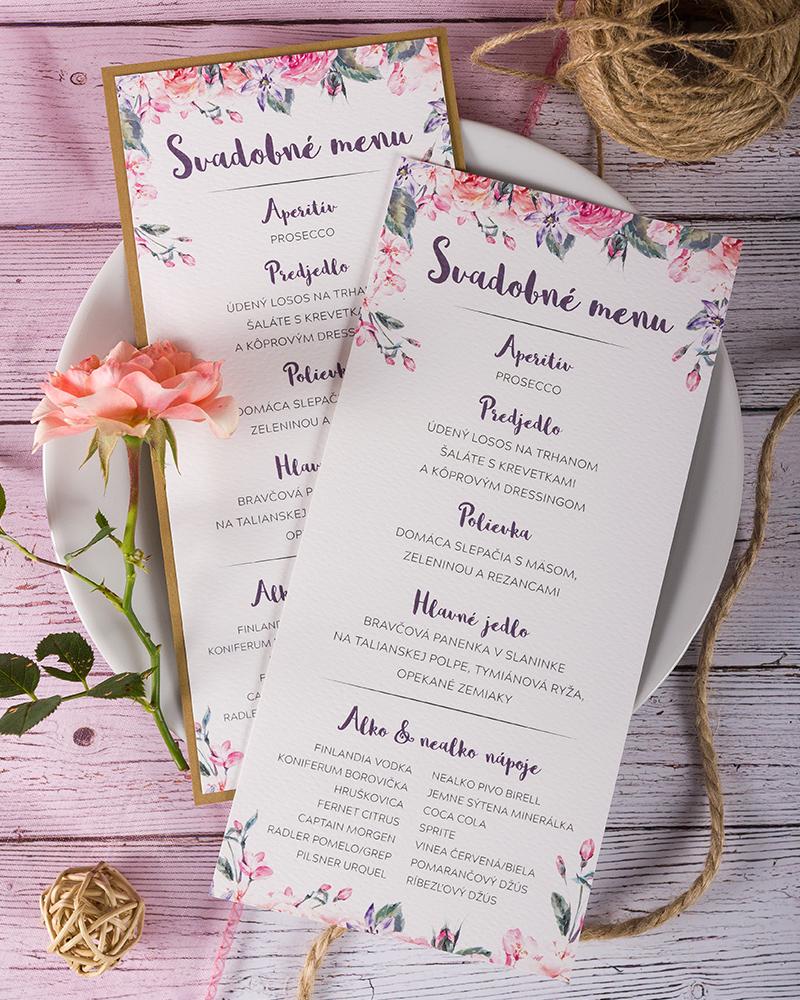 Svadobné menu
Aperitív
PROSECCO
Predjedlo
ÚDENÝ LOSOS NA TRHA
ŠALÁTE S KREVETKA
A KÔPROVÝM DRESS
Polievk
DOMÁCA SLEPAČ
ZELENINOU A
Hlav
BRAVČOVÁ P
NA TALIANSKEJ
OPE
Alk
FINLAN
KONIFERUM
CAP
RADLER
Svadobné menu
Aperitív
PROSECCO
Predjedlo
ÚDENÝ LOSOS NA TRHANOM
ŠALÁTE S KREVETKAMI
A KÔPROVÝM DRESSINGOM
Polievka
DOMÁCA SLEPAČIA S MÄSOM,
ZELENINOU A REZANCAMI
Hlavné jedlo
BRAVČOVÁ PANENKA V SLANINKE
NA TALIANSKEJ POLPE, TYMIÁNOVÁ RYŽA,
OPEKANÉ ZEMIAKY
Alko & nealko nápoje
FINLANDIA VODKA
KONIFERUM BOROVIČKA
HRUŠKOVICA
FERNET CITRUS
CAPTAIN MORGEN
RADLER POMELO/GREP
PILSNER URQUEL
NEALKO PIVO BIRELL
JEMNE SÝTENA MINERÁLKA
COCA COLA
SPRITE
VINEA ČERVENÁ/BIELA
POMARANČOVÝ DŽÚS
RÍBEZĽOVÝ DŽÚS